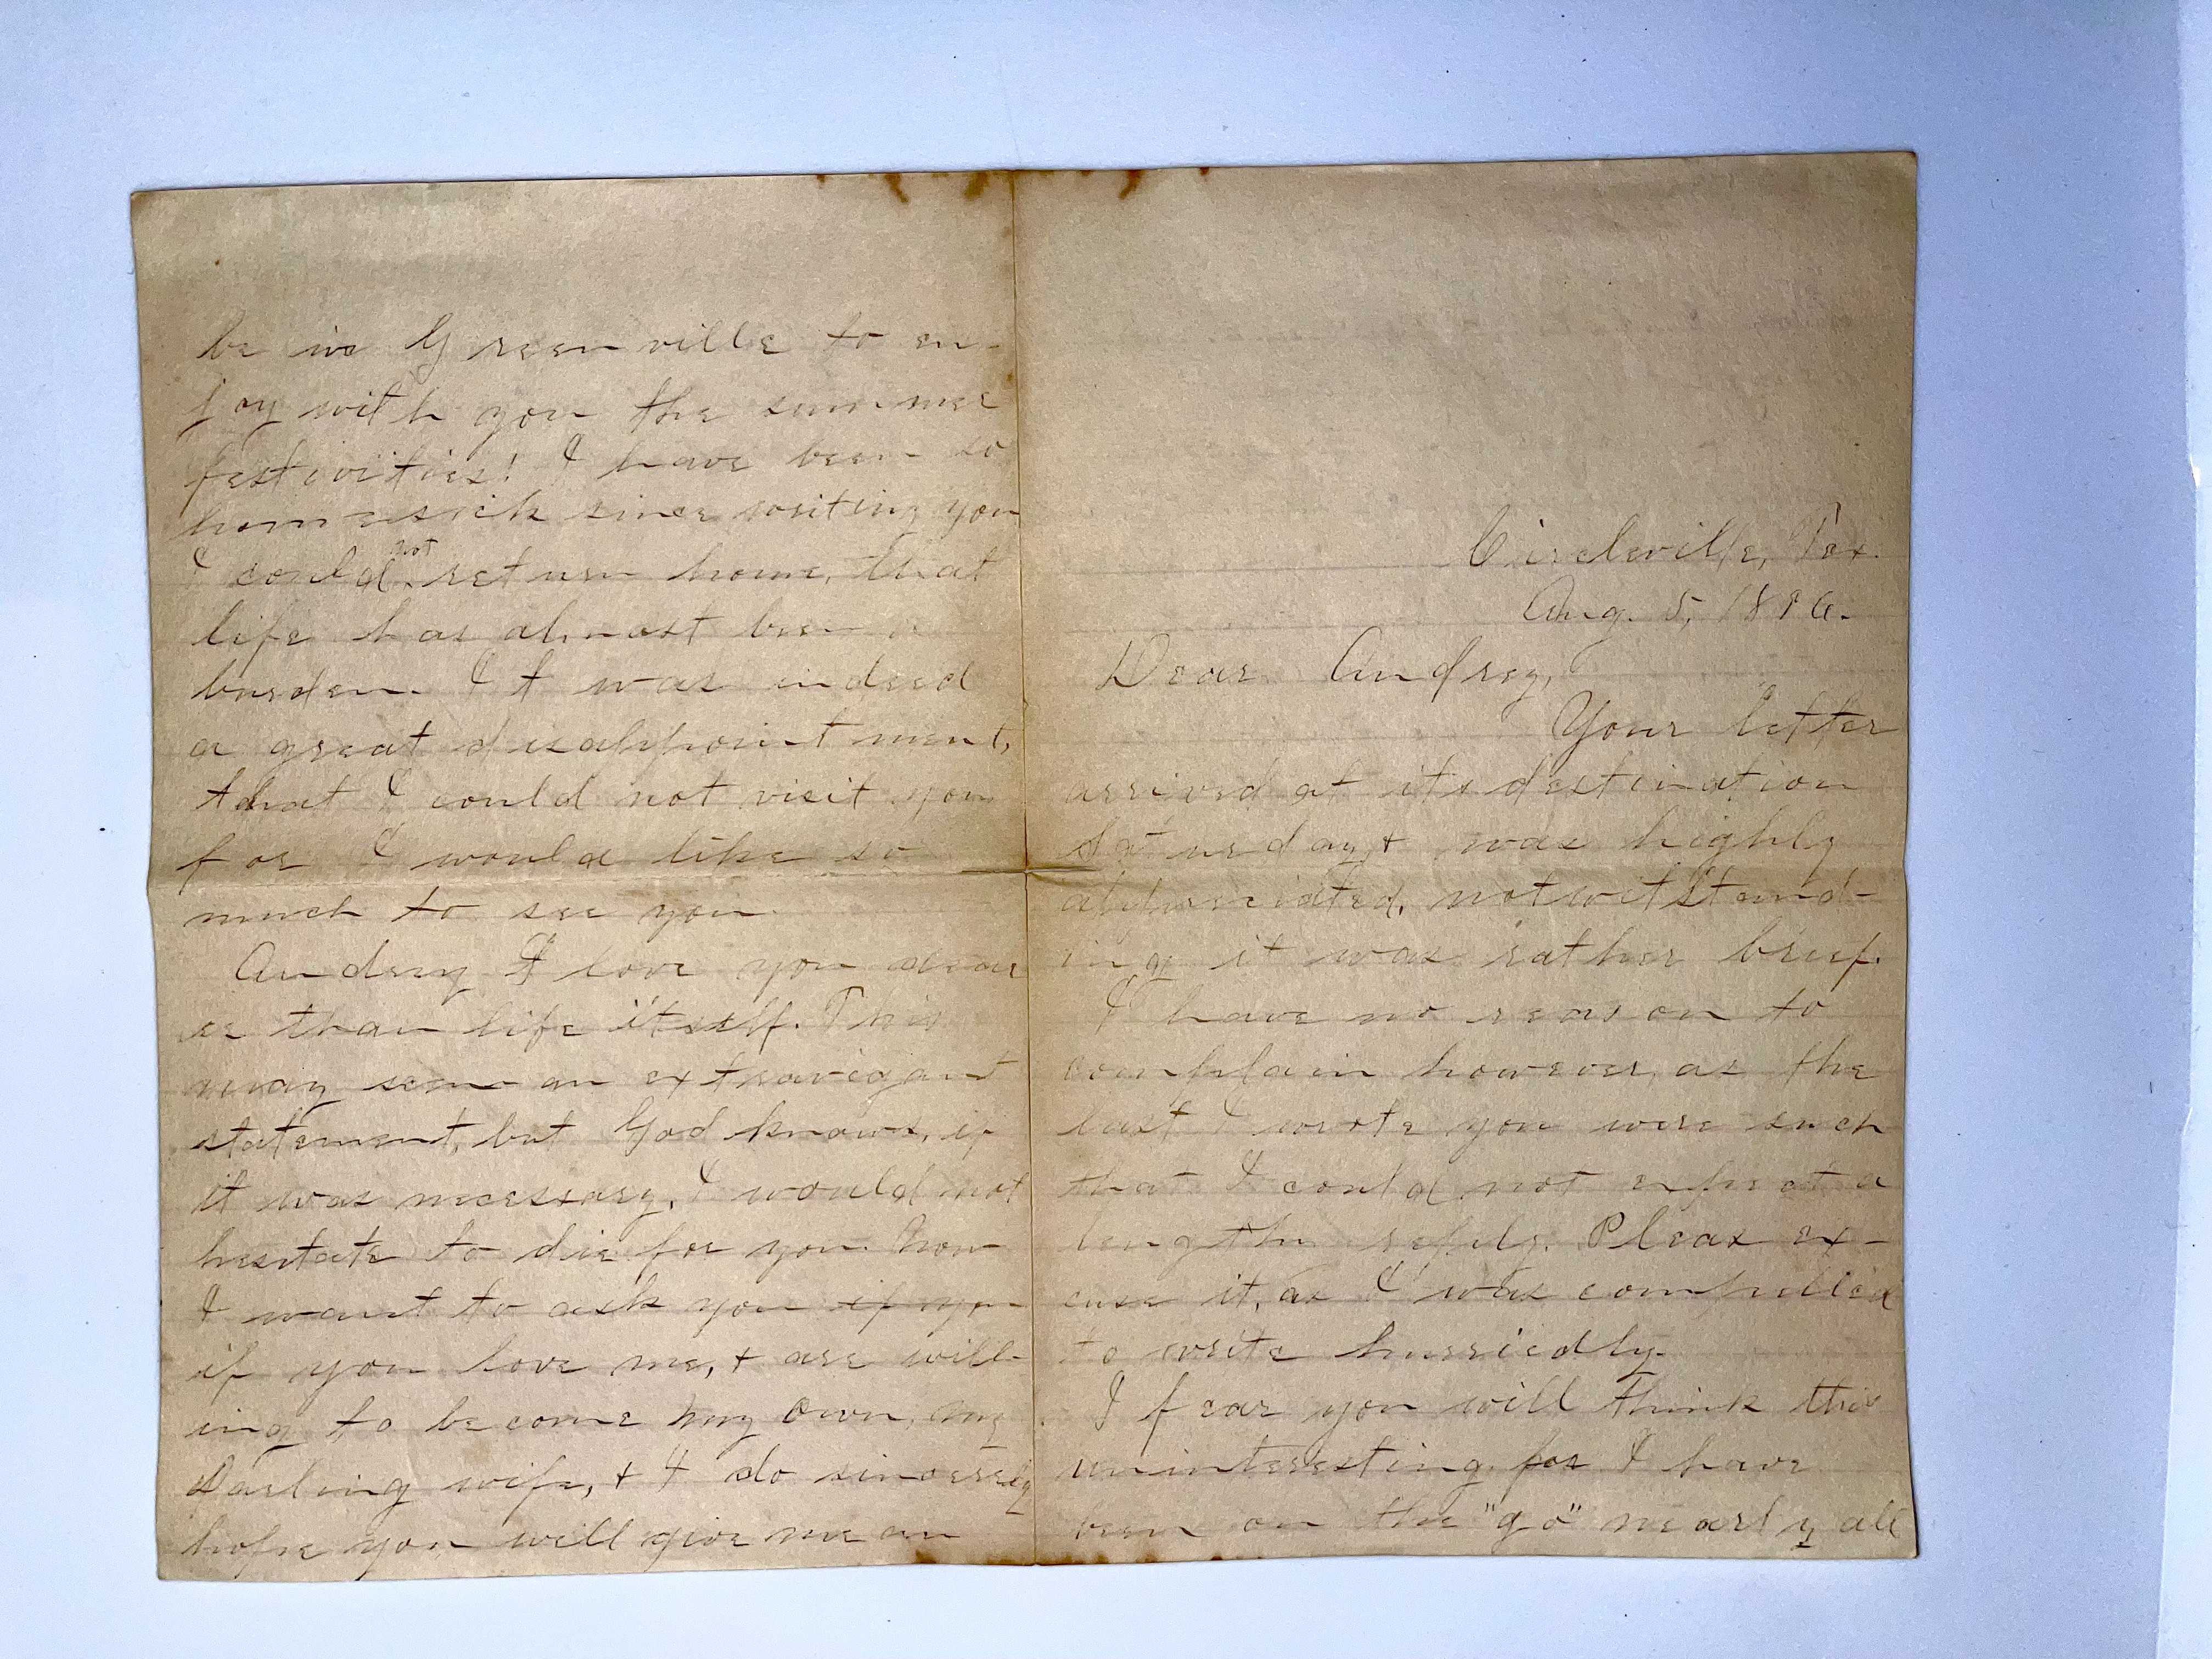 Circleville, Tex.
Aug. 5, 1896.
Dear Audrey,
Your letter
arrived at its destination
Saturday, + was highly
appreciated, notwitstand-
ing it was rather brief.
I have no reason to
complain however, as the
last I wrote you were such
that I could not expect a
lengthy reply. Pleas ex-
cuse it, as I was compelled
to write hurriedly.
I fear you will think this
uninteresting, for I have
been on the "go" nearly all
be in Greenville to en-
joy with you the summer
festivities! I have been so
homesick since writing you
I could not return home, that
life has almost been a
burden. It was indeed
a great disappointment,
that I could not visit you
for I would like so
much to see you.
Audrey I love you dear
er than life itself. This
may seem an extravigant
statement, but God knows, if
it was necessary, I would not
hesitate to die for you. Now
I want to ask you if you
if you love me, + are will-
ing to become my own, my
Darling wife, + I do sincerely
hope you will give me an